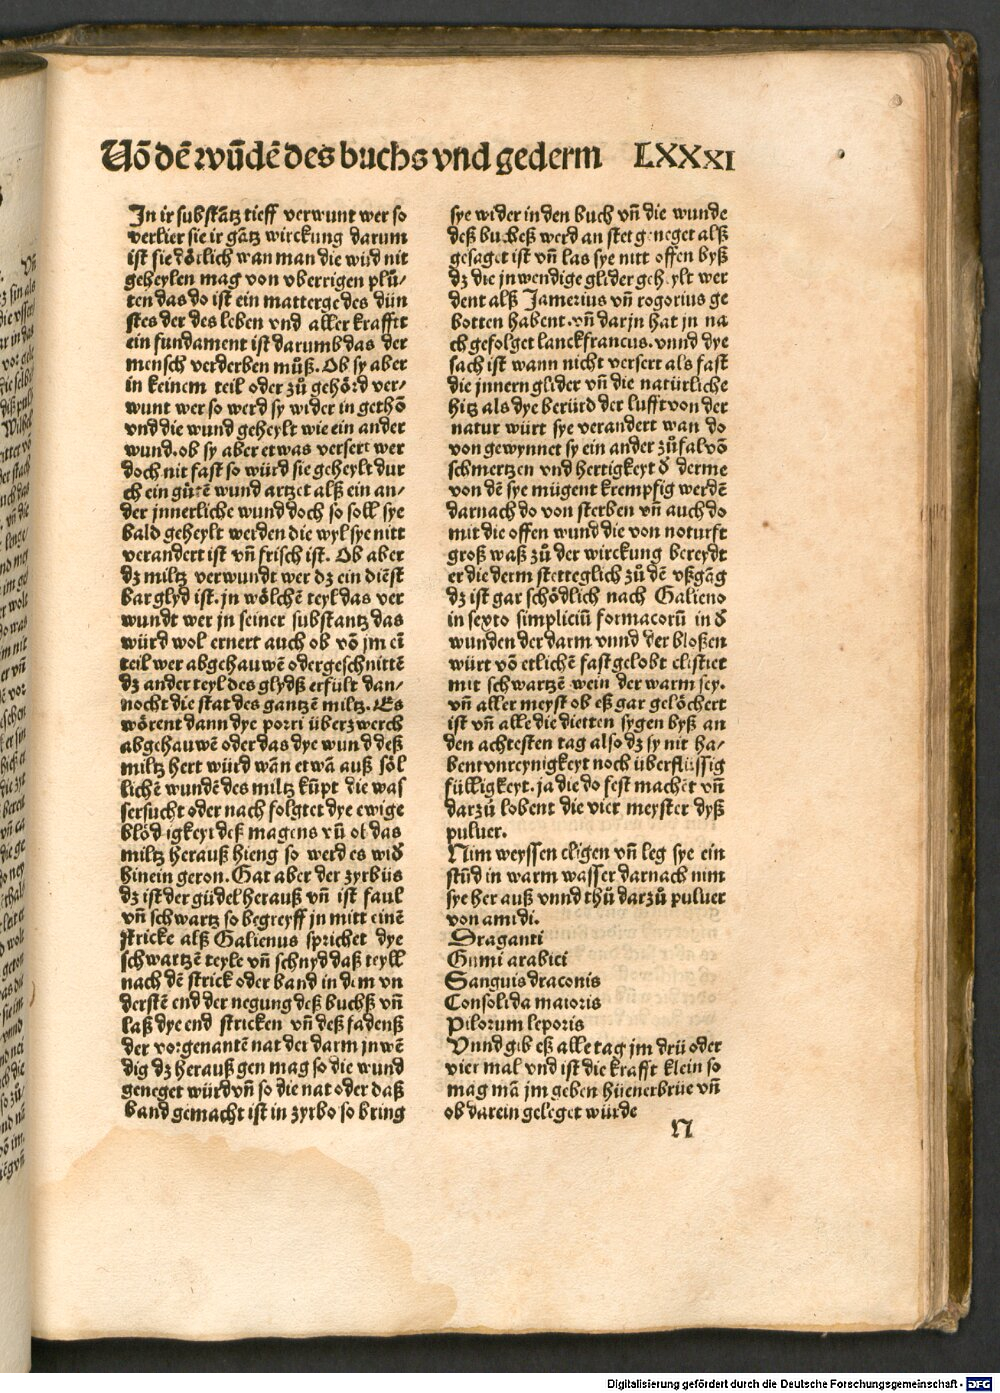 Uõ dẽ wũdẽ des buchs vnd gederm LXXXI
In ir substãtz tieff verwunt wer so
verlier sie ir gãtz wirckung darum
ist sie dötlich wan man die wūd nit
geheylen mag von vberrigen plů-
ten das do ist ein matterge des dün
stes der des leben vnd aller krafftt
ein fundament ist darumb das der
mensch verderben müß. Ob sy aber
in keinem teil oder zů gehörd ver-
wunt wer so werd sy wider in gethõ
vnd die wund geheylt wie ein ander
wund. ob sy aber etwas versert wer
doch nit fast so würd sie geheylt dur
ch ein gütẽ wund artzet alß ein an-
der jnnerliche wund doch so soll sye
bald geheylt werden die wyl sye nitt
verandert ist vñ frisch ist. Ob aber
dz miltz verwundt wer dz ein diẽst
bar glyd ist. jn wölchẽ teyl das ver
wundt wer jn seiner substantz das
würd wol ernert auch ob võ jm eĩ
teil wer abgehauwẽ oder geschnittẽ
dz ander teyl des glydß erfült dan-
nocht die stat des gantzẽ miltz. Es
wörent dann dye porri überzwerch
abgehauwẽ oder das dye wund deß
miltz hert würd wãn etwã auß söl
lichẽ wundẽ des miltz kũpt die was
sersucht oder nach folgtet dye ewige
blödigkeyt deß magens vñ ob das
miltz herauß hieng so werd es wid̄
hinein geton. Gat aber der zyrbus
dz ist der güdel herauß vñ ist faul
vñ schwartz so begreyff jn mitt einẽ
stricke alß Galienus sprichet dye
schwartzẽ teyle vñ schnyd daß teyll
nach dẽ strick oder band in dem vn
derstẽ end der negung deß buchß vñ
laß dye end stricken vñ deß fadenß
der vorgenantẽ nat der darm jnwẽ
dig dz herauß gen mag so die wund
geneget würd vñ so die nat oder daß
band gemacht ist in zyrbo so bring
sye wider in den buch vñ die wunde
deß buchß werd an stet geneget alß
gesaget ist vñ las sye nitt offen byß
dz die jnwendige glider geheylt wer
dent alß Jamerius vñ rogorius ge
botten habent. vñ darjn hat jn na
ch gefolget lanckfrancus. vnnd dye
sach ist wann nicht versert als fast
die jnnern glider vñ die natürliche
hitz als dye berürd der lufft von der
natur würt sye verandert wan do
von gewynnet sy ein ander zůfal võ
schmertzen vnd hertigkeyt d̄ derme
von dẽ sye mügent krempfig werdẽ
darnach do von sterben vñ auch do
mit die offen wund die von noturft
groß waß zů der wirckung bereydt
er die derm stetteglich zů dẽ vßgãg
dz ist gar schödlich nach Galieno
in sexto simpliciũ formacorũ in d̄
wunden der darm vnnd der bloßen
würt võ etlichẽ fast gelobt clistiet
mit schwartzẽ wein der warm sey.
vñ aller meyst ob eß gar gelöchert
ist vñ alle die dietten sygen byß an
den achtesten tag also dz sy nit ha-
bent vnreynigkeyt noch überflüssig
fülligkeyt. ja die do fest machẽt vñ
darzů lobent die vier meyster dyß
puluer.
Nim weyssen eligen vñ leg sye ein
stũd in warm wasser darnach nim
sye her auß vnnd thů darzů puluer
von amidi.
Draganti
Gumi arabici
Sanguis draconis
Consolida maioris
Pilorum leporis
Vnnd gib eß alle tag jm drü oder
vier mal vnd ist die krafft klein so
mag mã jm geben hüenerbrüe vñ
ob darein geleget würde
N
Digitalisierung gefördert durch die Deutsche Forschungsgemeinschaft - DFG